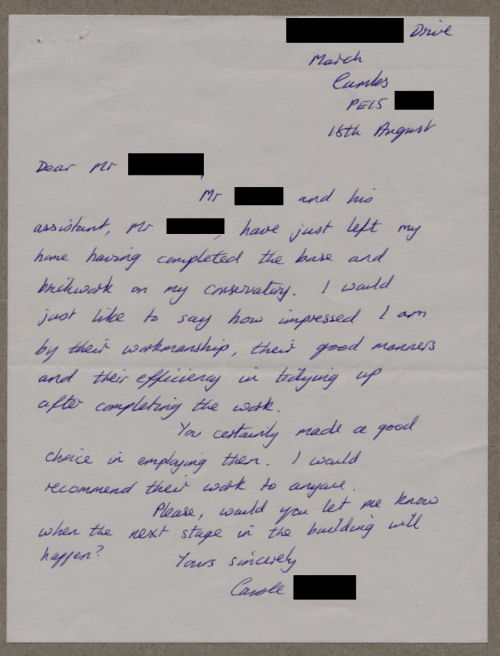 Drive
March
Cambs
PE15
18th August
Dear Mr
Mr and his
assistant, Mr , have just left my
home having completed the base and
brickwork on my conservatory. I would
just like to say how impressed I am
by their workmanship, their good manners
and their efficiency in tidying up
after completing the work.
You certainly made a good
choice in employing them. I would
recommend their work to anyone.
Please, would you let me know
when the next stage in the building will
happen?
Yours sincerely
Carole